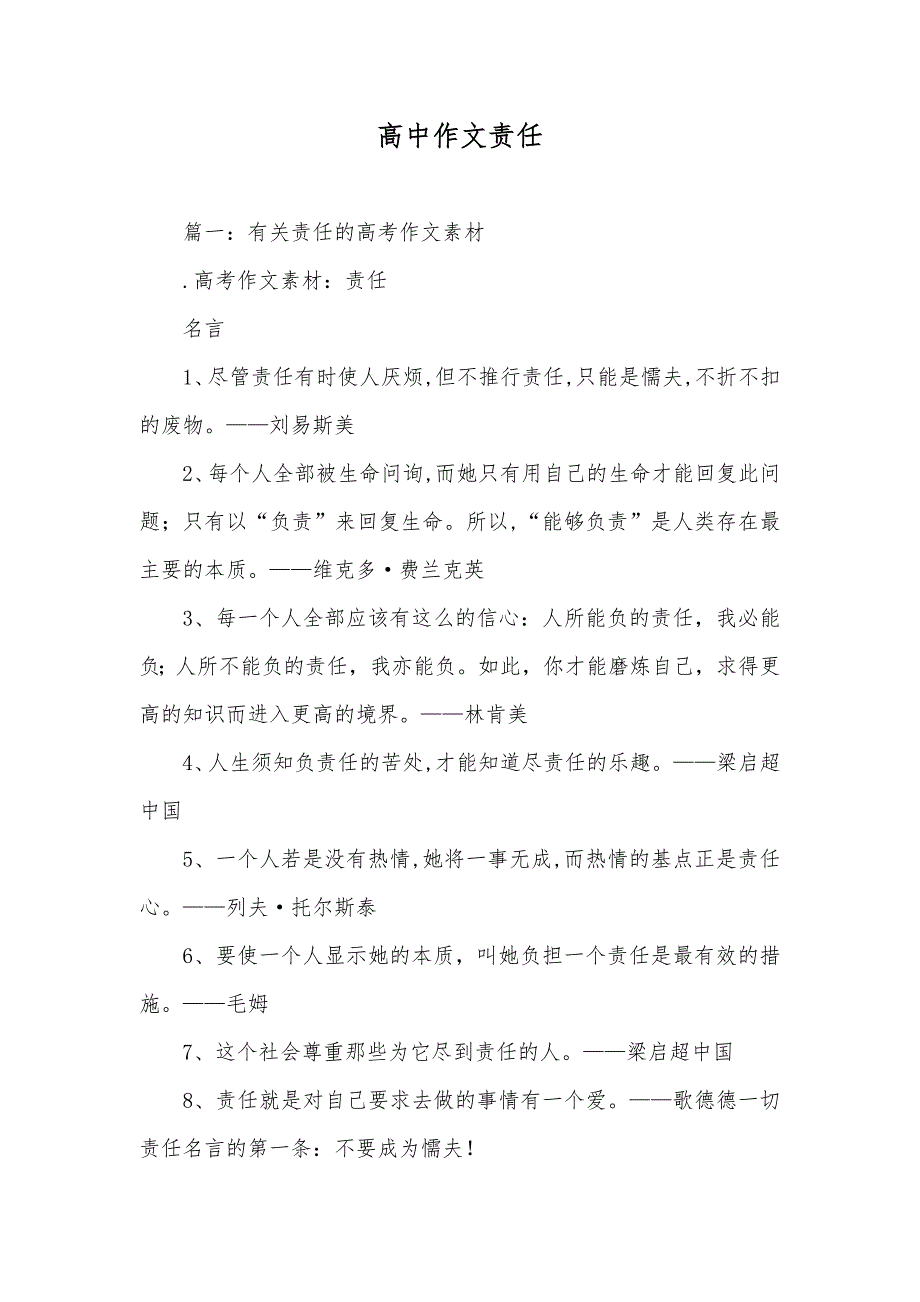 高中作文责任
篇一：有关责任的高考作文素材
.高考作文素材：责任
名言
1、尽管责任有时使人厌烦,但不推行责任,只能是懦夫,不折不扣
的废物。——刘易斯美
2、每个人全部被生命问询,而她只有用自己的生命才能回复此问
题；只有以“负责”来回复生命。所以,“能够负责”是人类存在最
主要的本质。——维克多·费兰克英
3、每一个人全部应该有这么的信心：人所能负的责任，我必能
负；人所不能负的责任，我亦能负。如此，你才能磨炼自己，求得更
高的知识而进入更高的境界。——林肯美
4、人生须知负责任的苦处,才能知道尽责任的乐趣。——梁启超
中国
5、一个人若是没有热情,她将一事无成,而热情的基点正是责任
心。——列夫·托尔斯泰
6、要使一个人显示她的本质，叫她负担一个责任是最有效的措
施。——毛姆
7、这个社会尊重那些为它尽到责任的人。——梁启超中国
8、责任就是对自己要求去做的事情有一个爱。——歌德德一切
责任名言的第一条：不要成为懦夫！